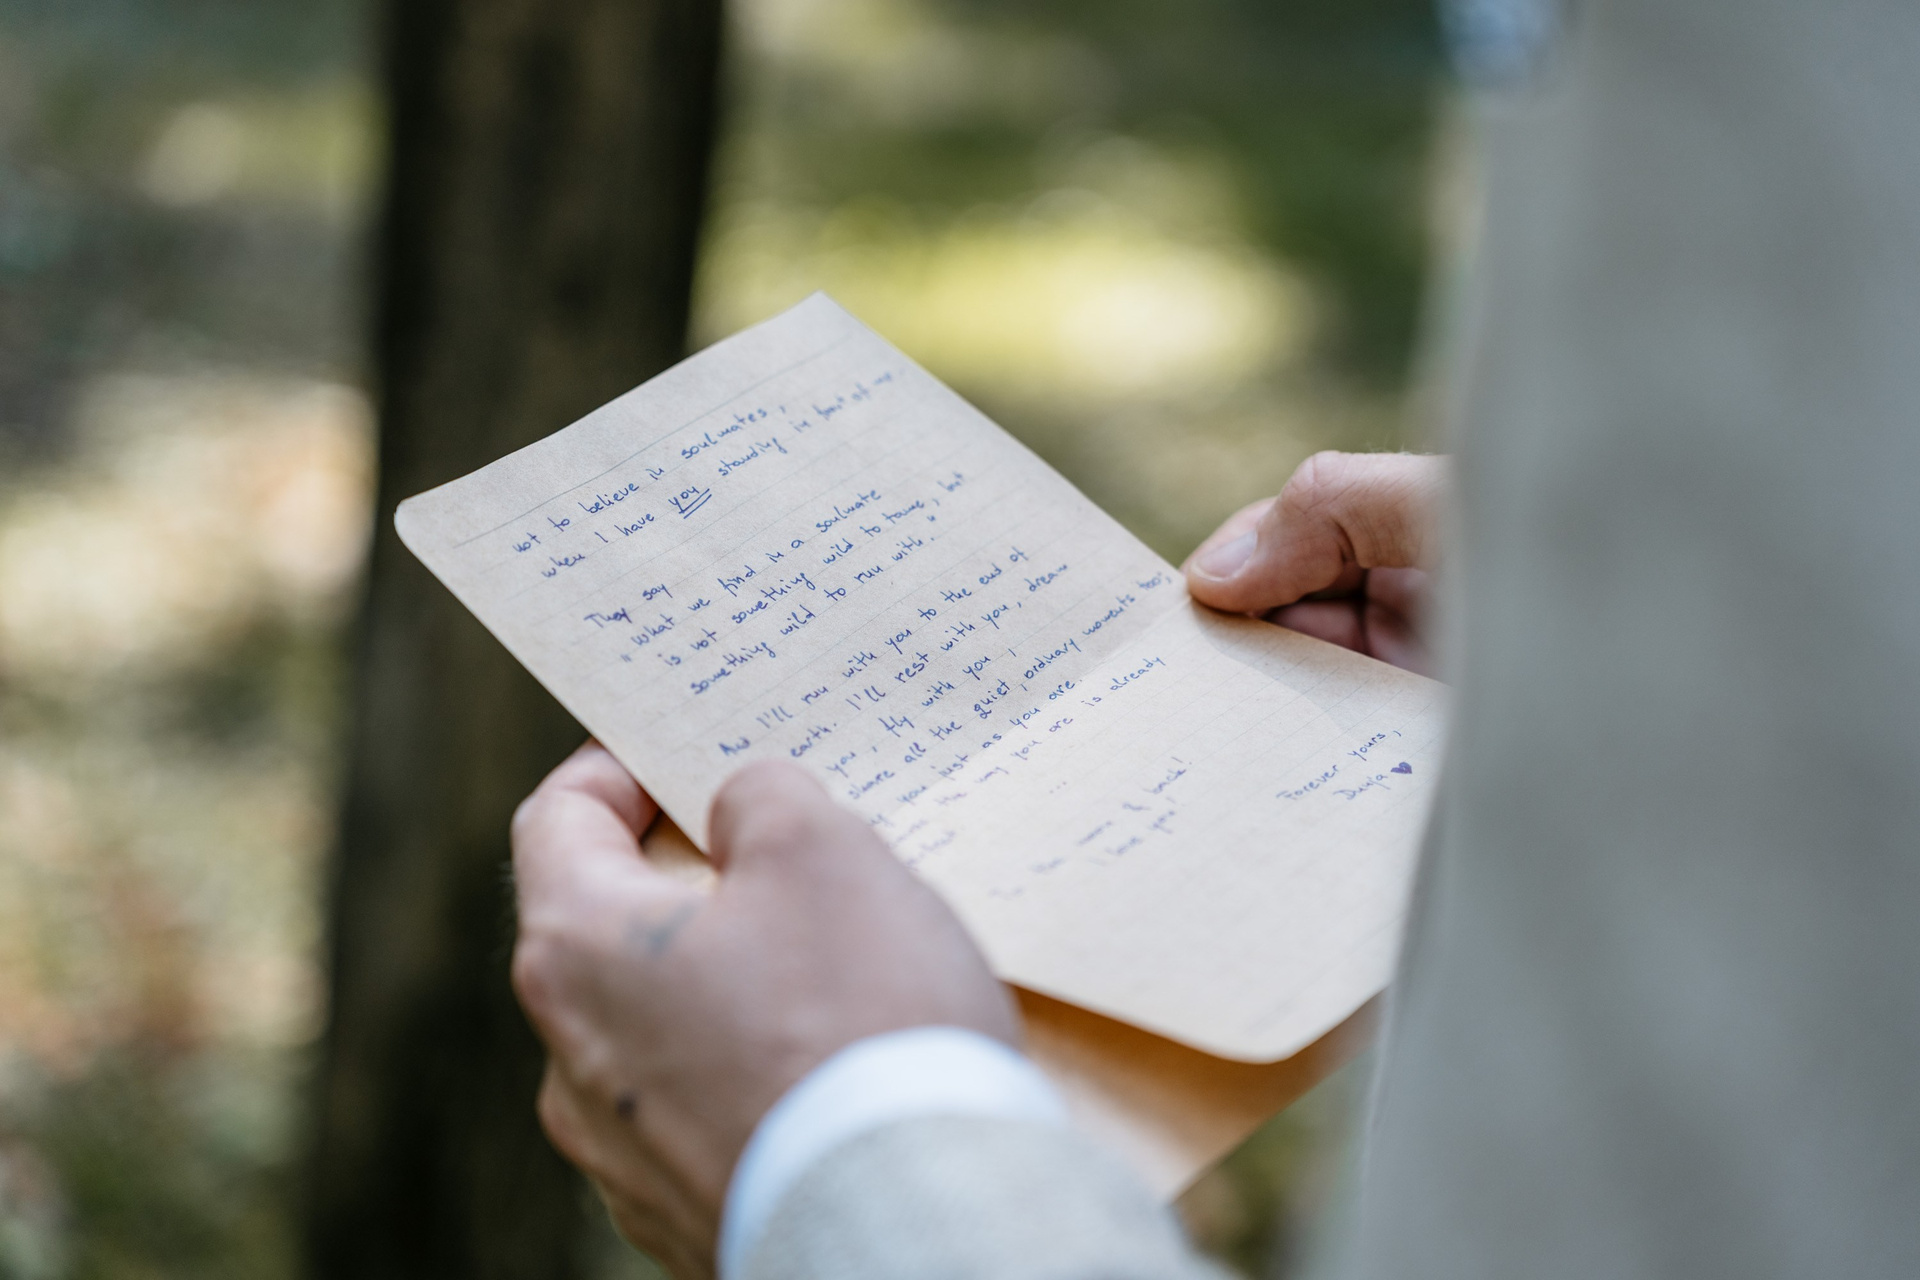 not to believe in soulmates,
when I have you standing in front of me.
They say
"What we find in a soulmate
is not something wild to tame, but
something wild to run with."
And I'll run with you to the end of
earth. I'll rest with you, dream
you, fly with you,
share all the quiet, ordinary moments too,
you just as you are.
the way you are is already
...
To the moon & back!
I love you!
Forever yours,